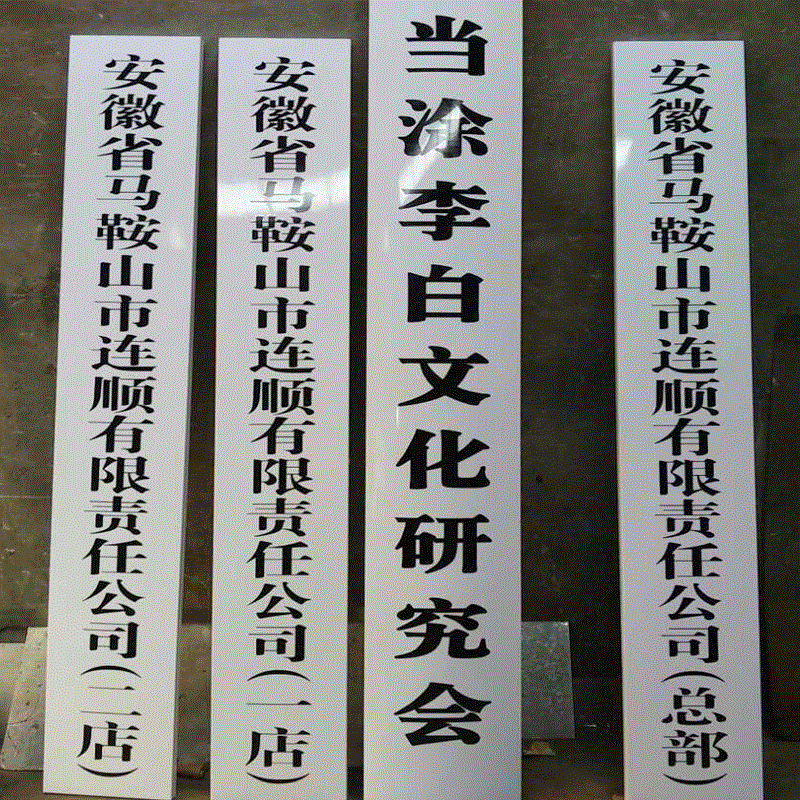 安徽省马鞍山市连顺有限责任公司(二店)
安徽省马鞍山市连顺有限责任公司(一店)
当涂李白文化研究会
安徽省马鞍山市连顺有限责任公司(总部)